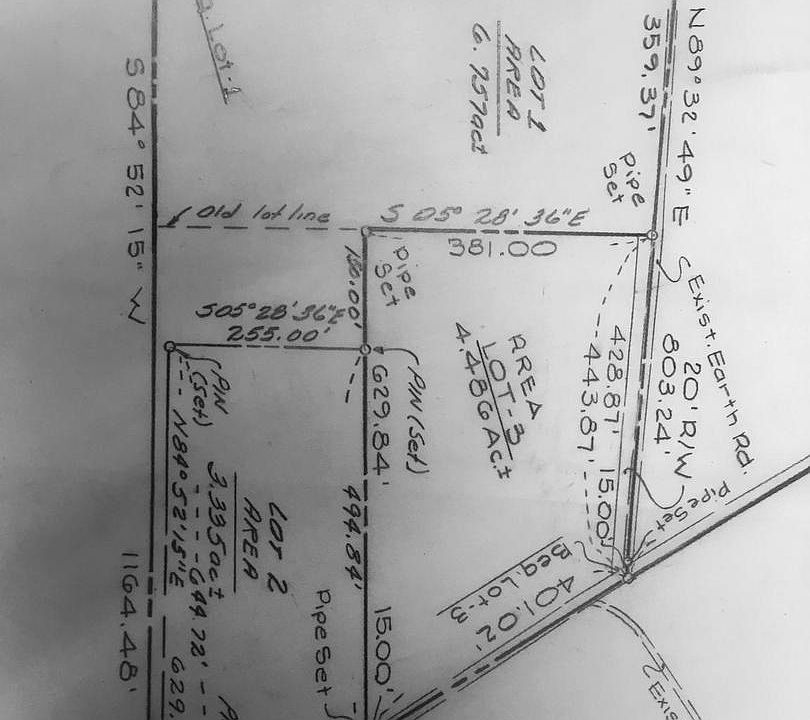 N 89° 32' 49" E
359.37'
LOT 1
AREA
6.757 ac±
g. Lot-1
S 84° 52' 15" W
Pipe
Set
Old lot line
S 05° 28' 36" E
381.00
Pipe
Set
S05° 28' 36" E
255.00'
Exist. Earth Rd.
20' R/W
803.24'
428.87'
443.87'
15.00'
AREA
LOT-3
4.486 Ac.±
PIN (Set)
629.84'
PIN
(Set)
N84° 52' 15" E
644.72'
LOT 2
AREA
3.335 ac±
494.84'
Pipe Set
Pipe Set
Beg. Lot-3
401.02'
15.00'
1164.48'
629.
Exis